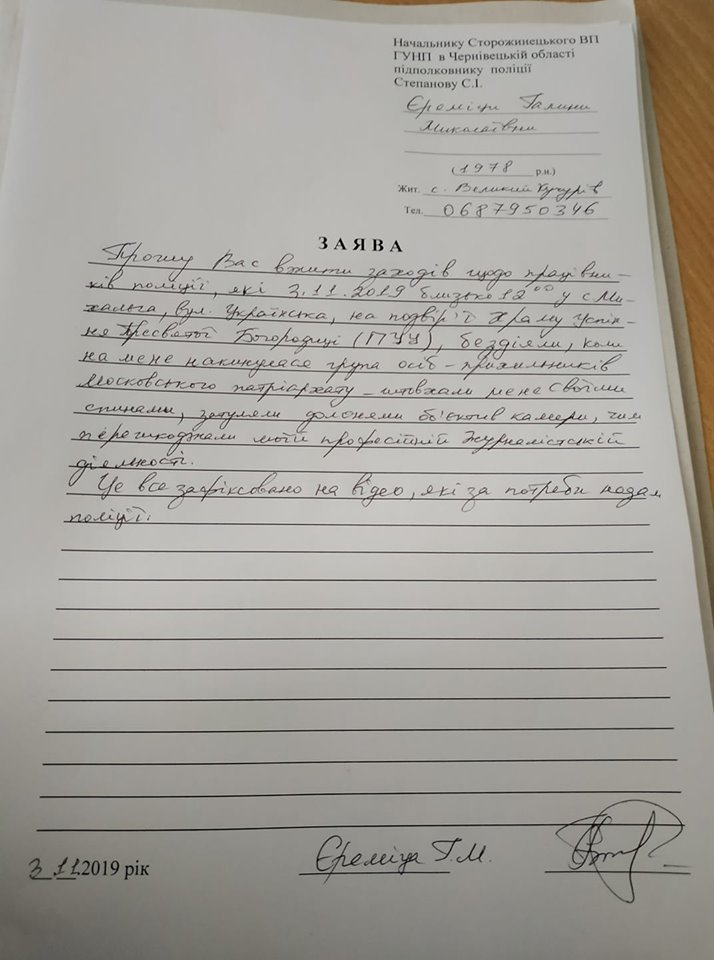 Начальнику Сторожинецького ВП
ГУНП в Чернівецькій області
підполковнику поліції
Степанову С.І.
Єреміци Галини
Миколаївни
(1978 р.н.)
Жит. с. Великий Кучурів
Тел. 0687950346
ЗАЯВА
Прошу Вас вжити заходів щодо працівни-
ків поліції, які 3.11.2019 близько 12⁰⁰ у с. Ми-
хальча, вул. Українська, на подвір'ї Храму Успін-
ня Пресвятої Богородиці (ПЦУ), бездіяли, коли
на мене накинулася група осіб - прихильників
Московського патріархату - штовхали мене своїми
спинами, затуляли долонями об'єктив камери, чим
перешкоджали моїй професійній журналістській
діяльності.
Це все зафіксовано на відео, які за потреби надам
поліції.
3.11.2019 рік Єреміца Г.М.